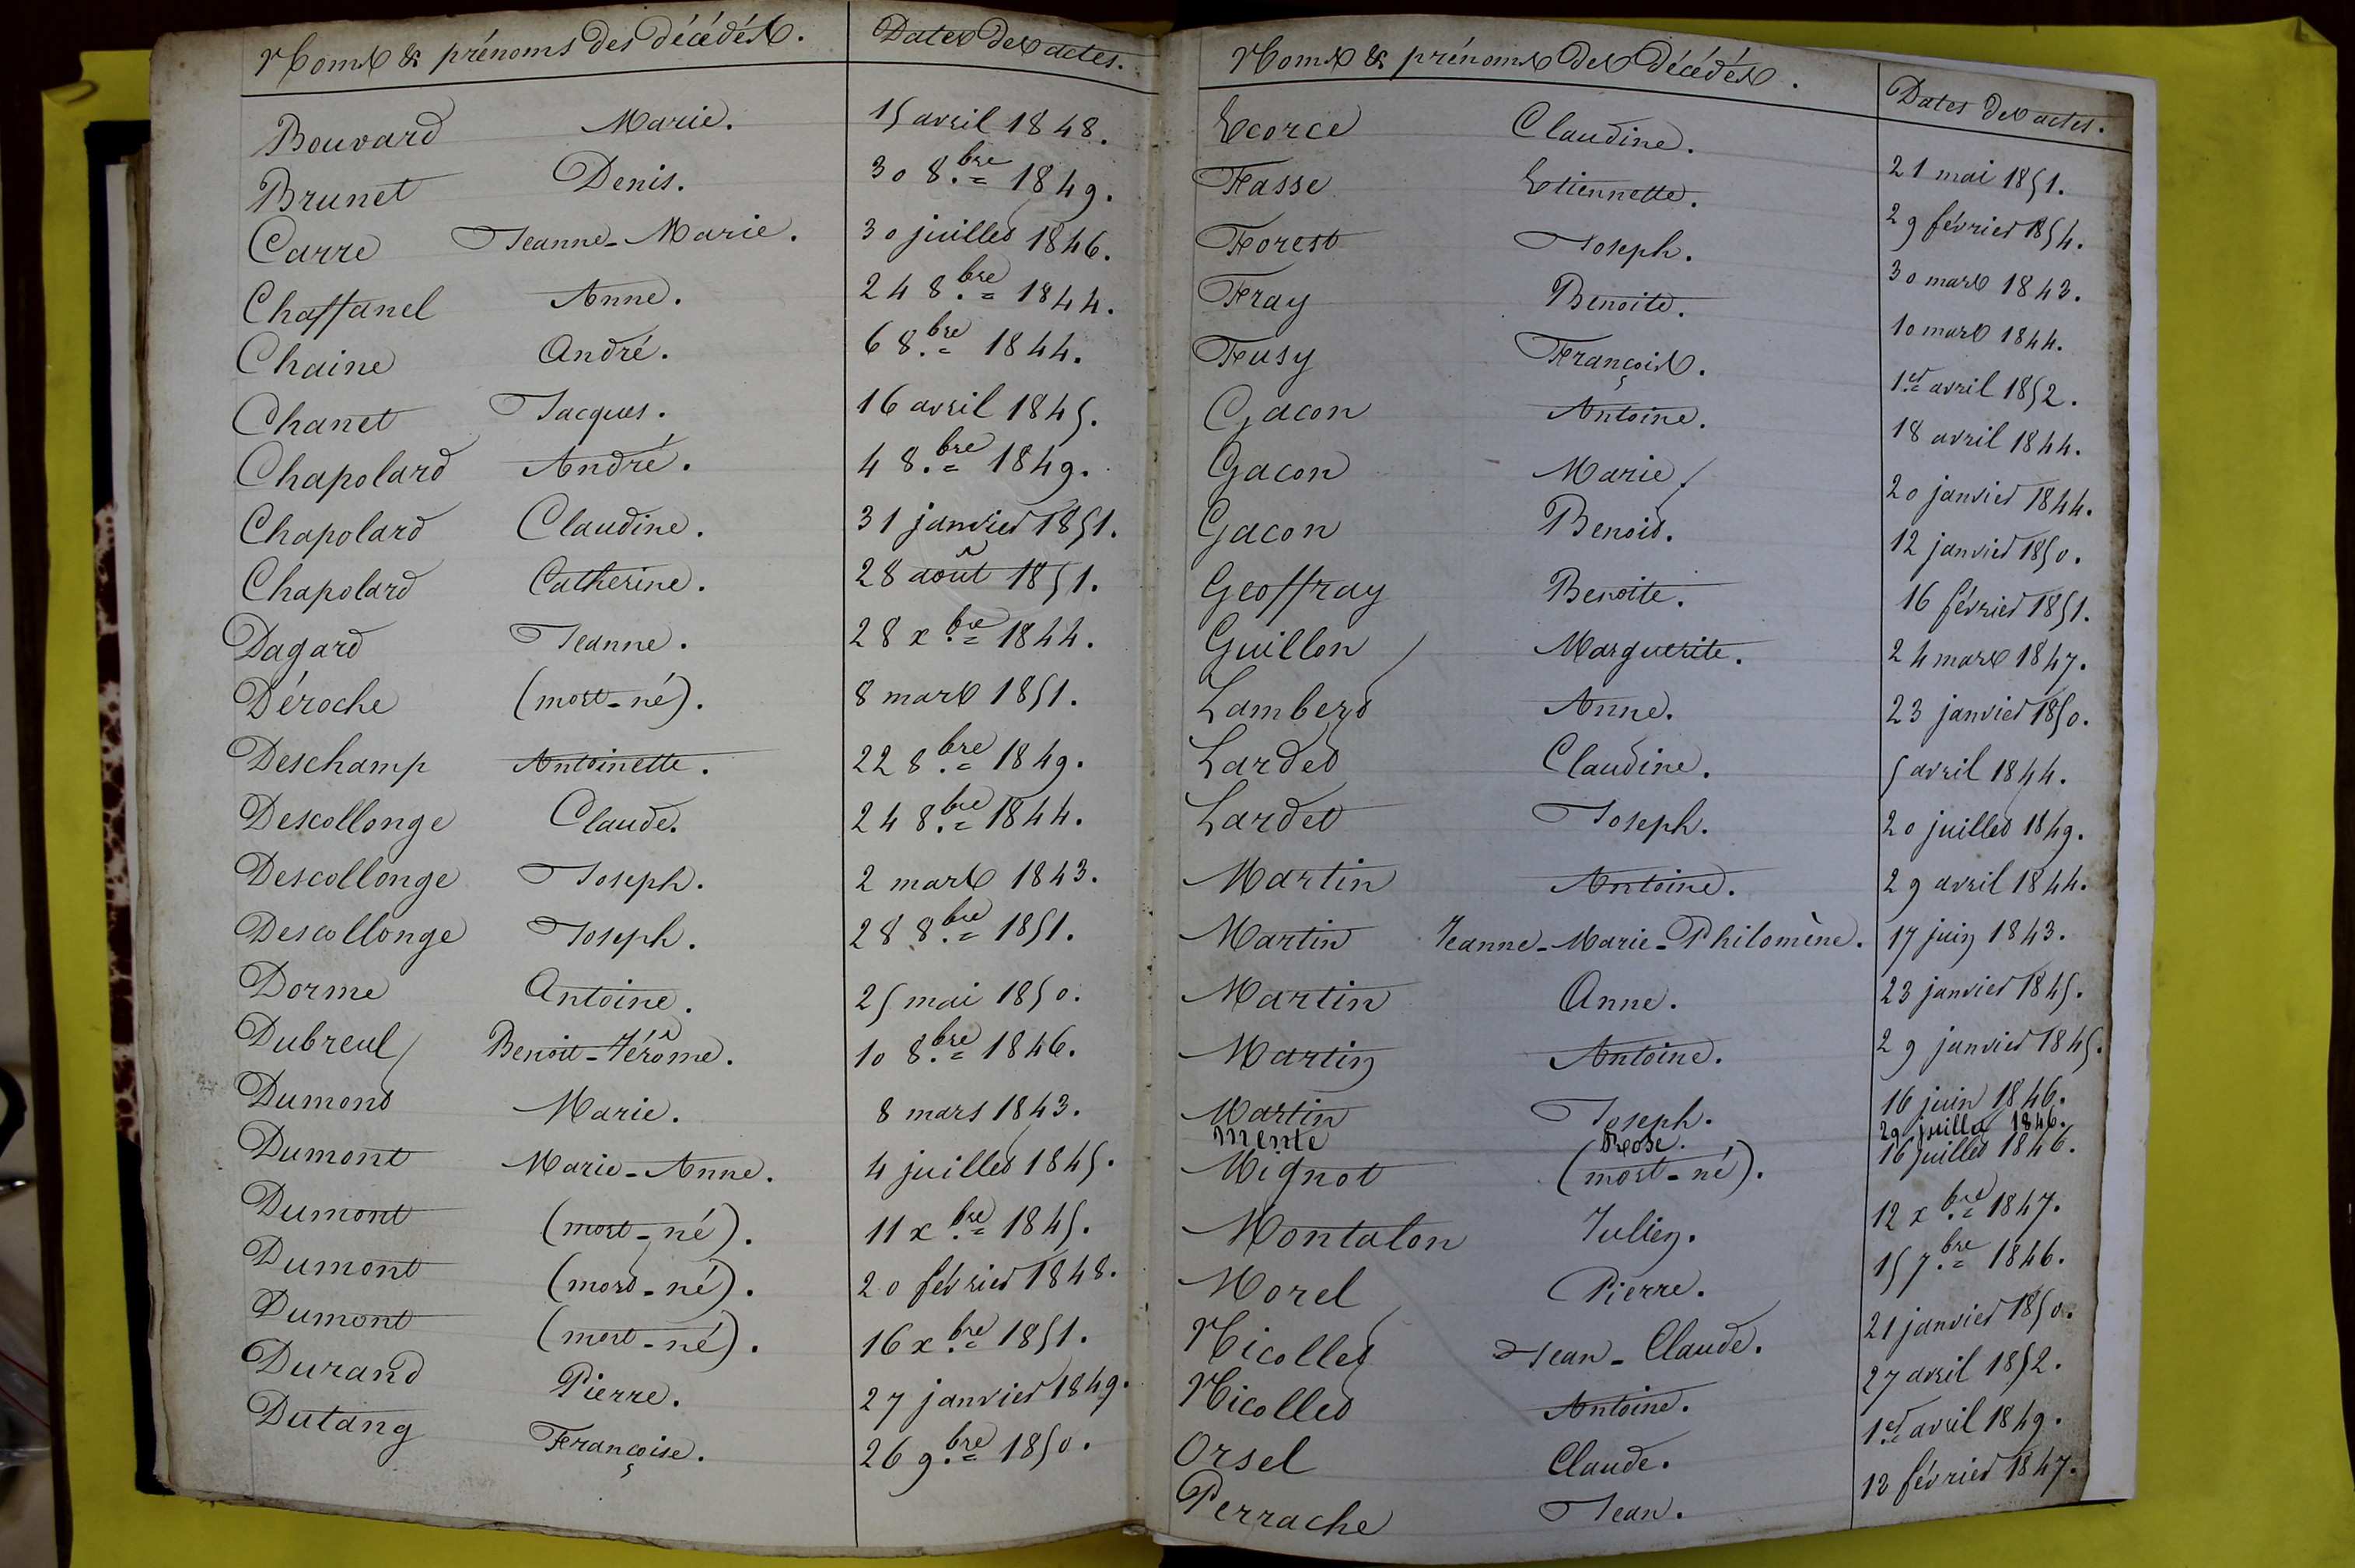 Noms & prénoms des décédés. Dates des actes.
Bouvard Marie. 15 avril 1848.
Brunet Denis. 30 8.bre 1849.
Carre Jeanne-Marie. 30 juillet 1846.
Chaffanel Anne. 24 8.bre 1844.
Chaine André. 6 8.bre 1844.
Chanet Jacques. 16 avril 1845.
Chapolard André. 4 8.bre 1849.
Chapolard Claudine. 31 janvier 1851.
Chapolard Catherine. 28 août 1851.
Dagard Jeanne. 28 x.bre 1844.
Déroche (mort-né). 8 mars 1851.
Deschamp Antoinette. 22 8.bre 1849.
Descollonge Claude. 24 8.bre 1844.
Descollonge Joseph. 2 mars 1843.
Descollonge Joseph. 28 8.bre 1851.
Dorme Antoine. 25 mai 1850.
Dubreul Benoit-Jérôme. 10 8.bre 1846.
Dumont Marie. 8 mars 1843.
Dumont Marie-Anne. 4 juillet 1845.
Dumont (mort-né). 11 x.bre 1845.
Dumont (mort-né). 20 février 1848.
Dumont (mort-né). 16 x.bre 1851.
Durand Pierre. 27 janvier 1849.
Dutang Françoise. 26 9.bre 1850.
Noms & prénoms des décédés. Dates des actes.
Ecorce Claudine. 21 mai 1851.
Fasse Etiennette. 29 février 1854.
Forest Joseph. 30 mars 1843.
Fray Benoite. 10 mars 1844.
Fusy François. 1.er avril 1852.
Gacon Antoine. 18 avril 1844.
Gacon Marie. 20 janvier 1844.
Gacon Benoit. 12 janvier 1850.
Geoffray Benoite. 16 février 1851.
Guillon Marguerite. 24 mars 1847.
Lambert Anne. 23 janvier 1850.
Lardet Claudine. 5 avril 1844.
Lardet Joseph. 20 juillet 1849.
Martin Antoine. 29 avril 1844.
Martin Jeanne-Marie-Philomène. 17 juin 1843.
Martin Anne. 23 janvier 1845.
Martin Antoine. 29 janvier 1845.
Martin Joseph. 16 juin 1846.
Mente Rose. 29 juillet 1846.
Mignot (mort-né). 16 juillet 1846.
Montalon Julien. 12 x.bre 1847.
Morel Pierre. 15 7.bre 1846.
Nicollet Jean-Claude. 21 janvier 1850.
Nicollet Antoine. 27 avril 1852.
Orsel Claude. 1.er avril 1849.
Perrache Jean. 12 février 1847.